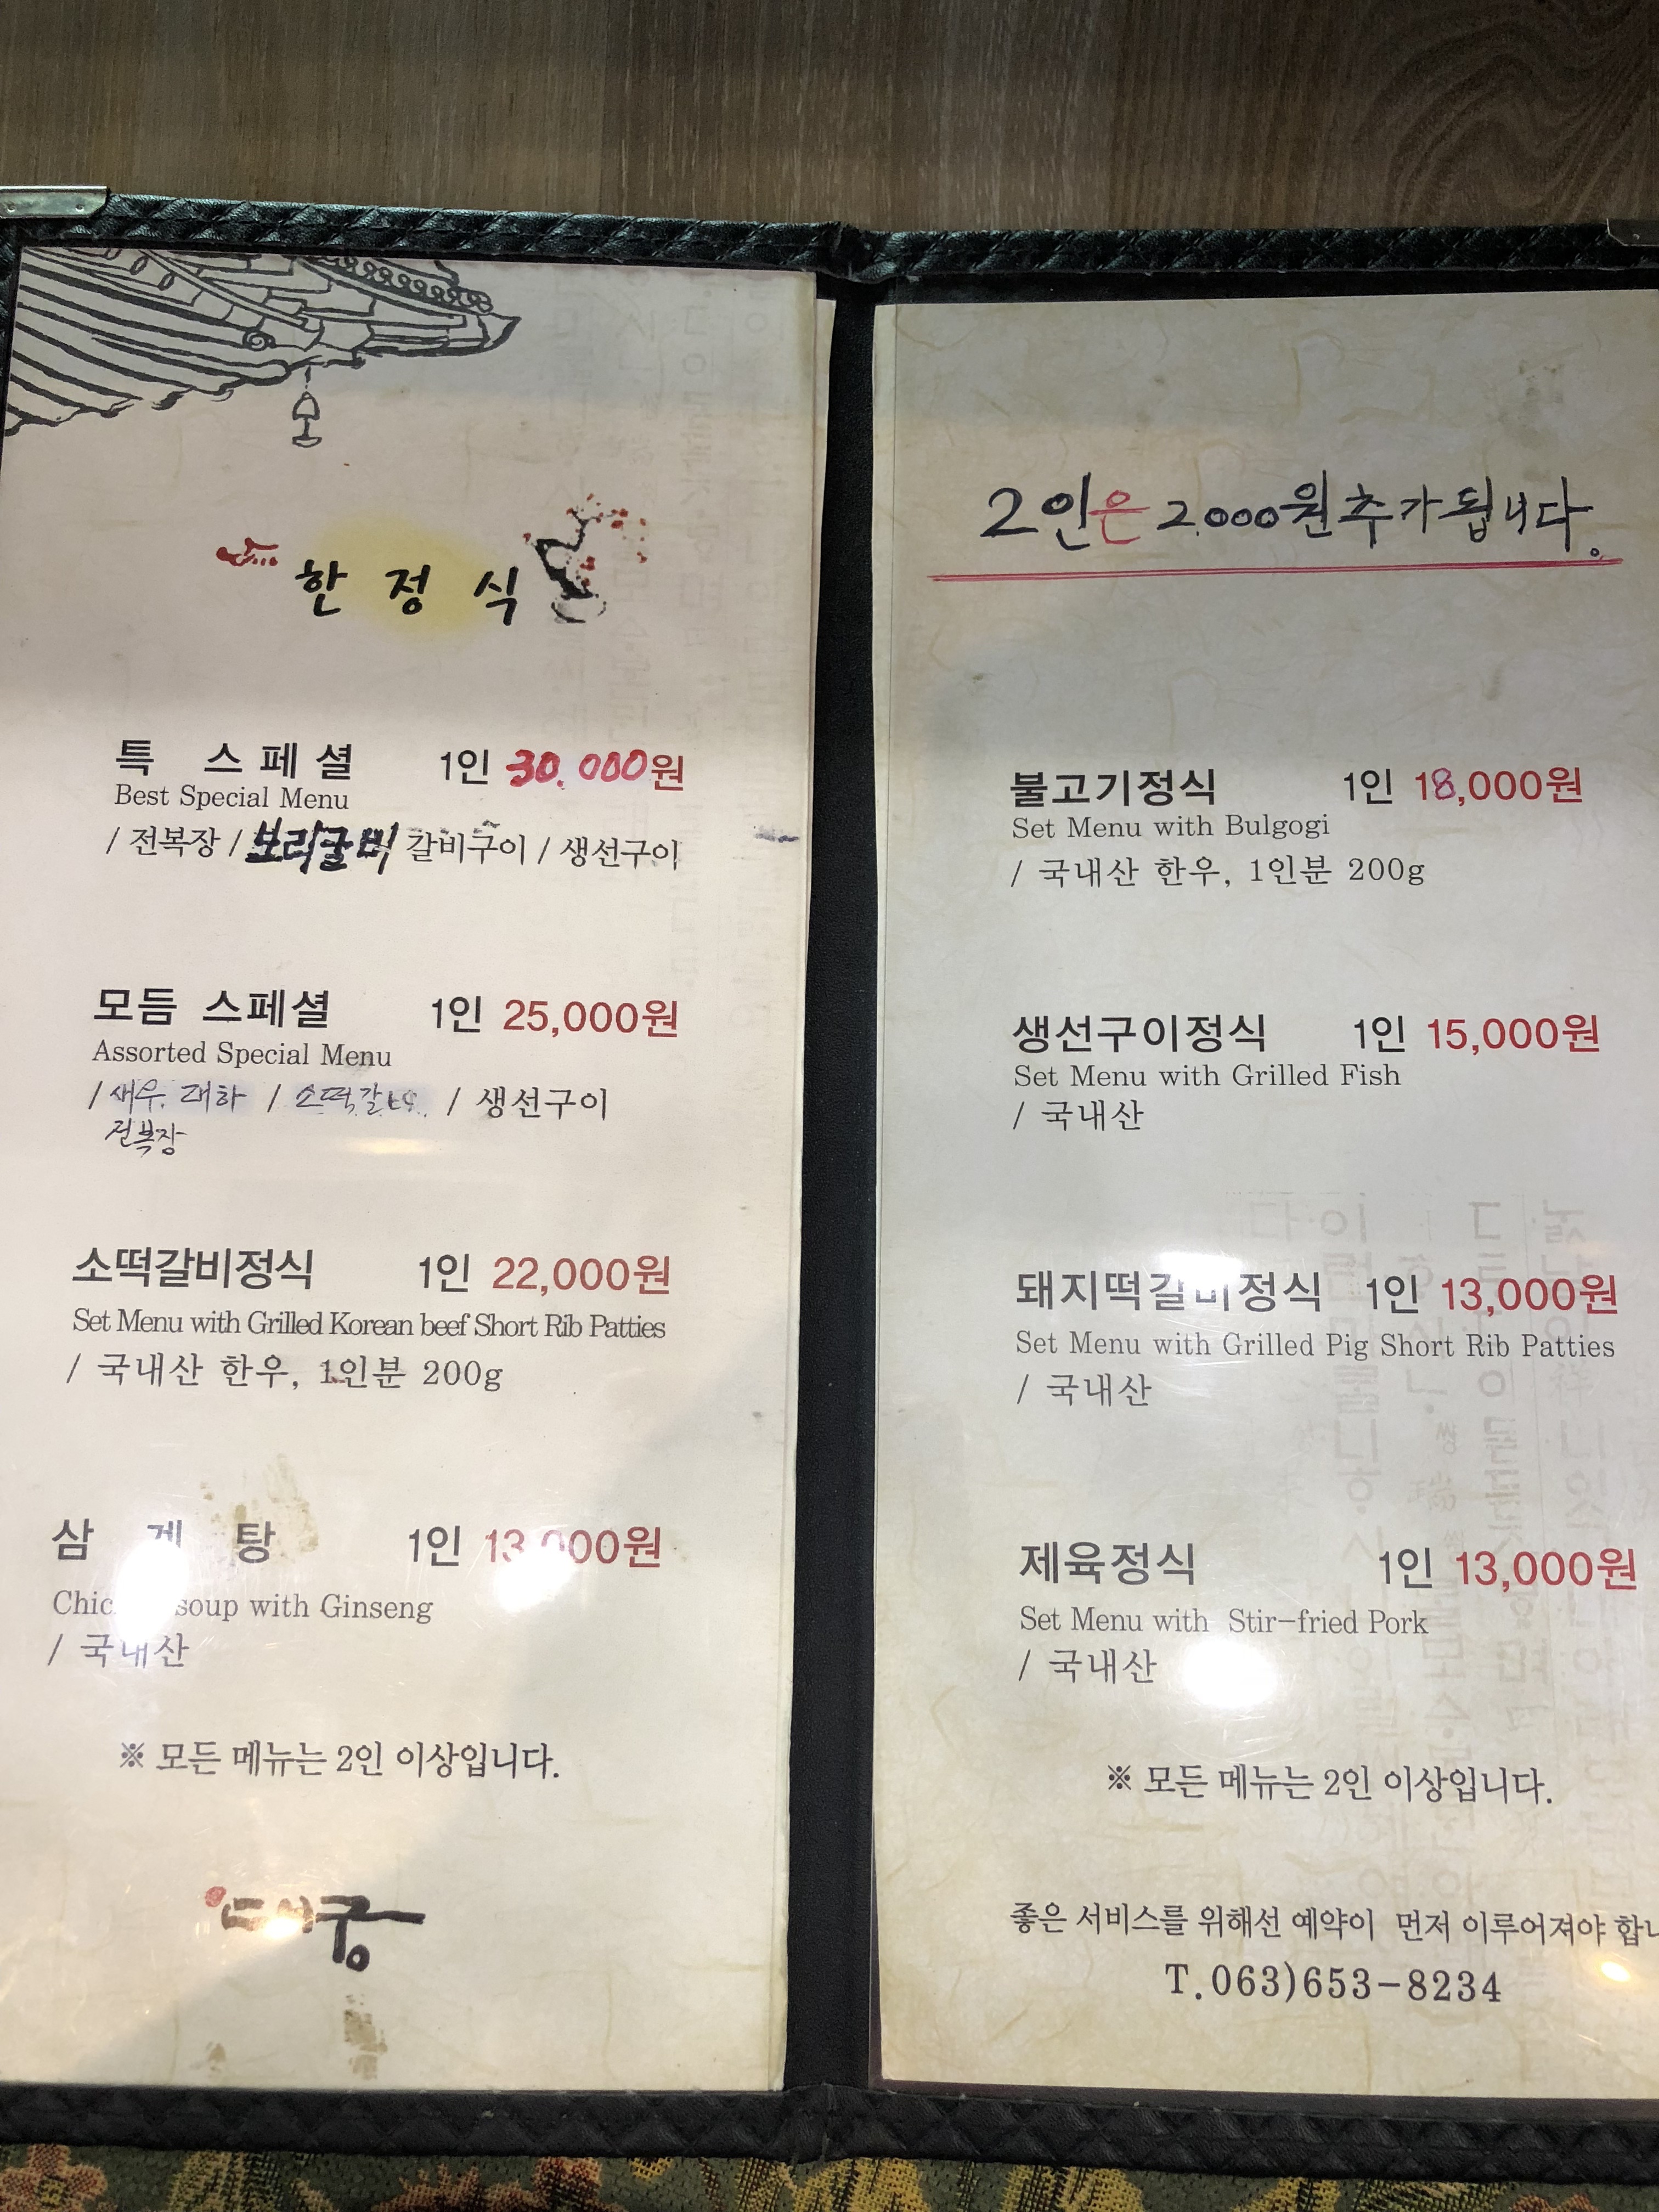 한 정 식
특 스페셜 1인 30.000원
Best Special Menu
/ 전복장 / 보리굴비 갈비구이 / 생선구이
모듬 스페셜 1인 25,000원
Assorted Special Menu
/ 새우. 대하 / 소떡갈비 / 생선구이
전복장
소떡갈비정식 1인 22,000원
Set Menu with Grilled Korean beef Short Rib Patties
/ 국내산 한우, 1인분 200g
삼 계 탕 1인 13,000원
soup with Ginseng
/ 국내산
※ 모든 메뉴는 2인 이상입니다.
대궁
2인은 2.000원 추가됩니다.
불고기정식 1인 18,000원
Set Menu with Bulgogi
/ 국내산 한우, 1인분 200g
생선구이정식 1인 15,000원
Set Menu with Grilled Fish
/ 국내산
돼지떡갈비정식 1인 13,000원
Set Menu with Grilled Pig Short Rib Patties
/ 국내산
제육정식 1인 13,000원
Set Menu with Stir-fried Pork
/ 국내산
※ 모든 메뉴는 2인 이상입니다.
좋은 서비스를 위해선 예약이 먼저 이루어져야
T.063)653-8234